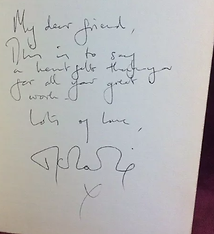 My dear friend,
This is to say
a heartfelt thankyou
for all your great
work -
Lots of love,
X